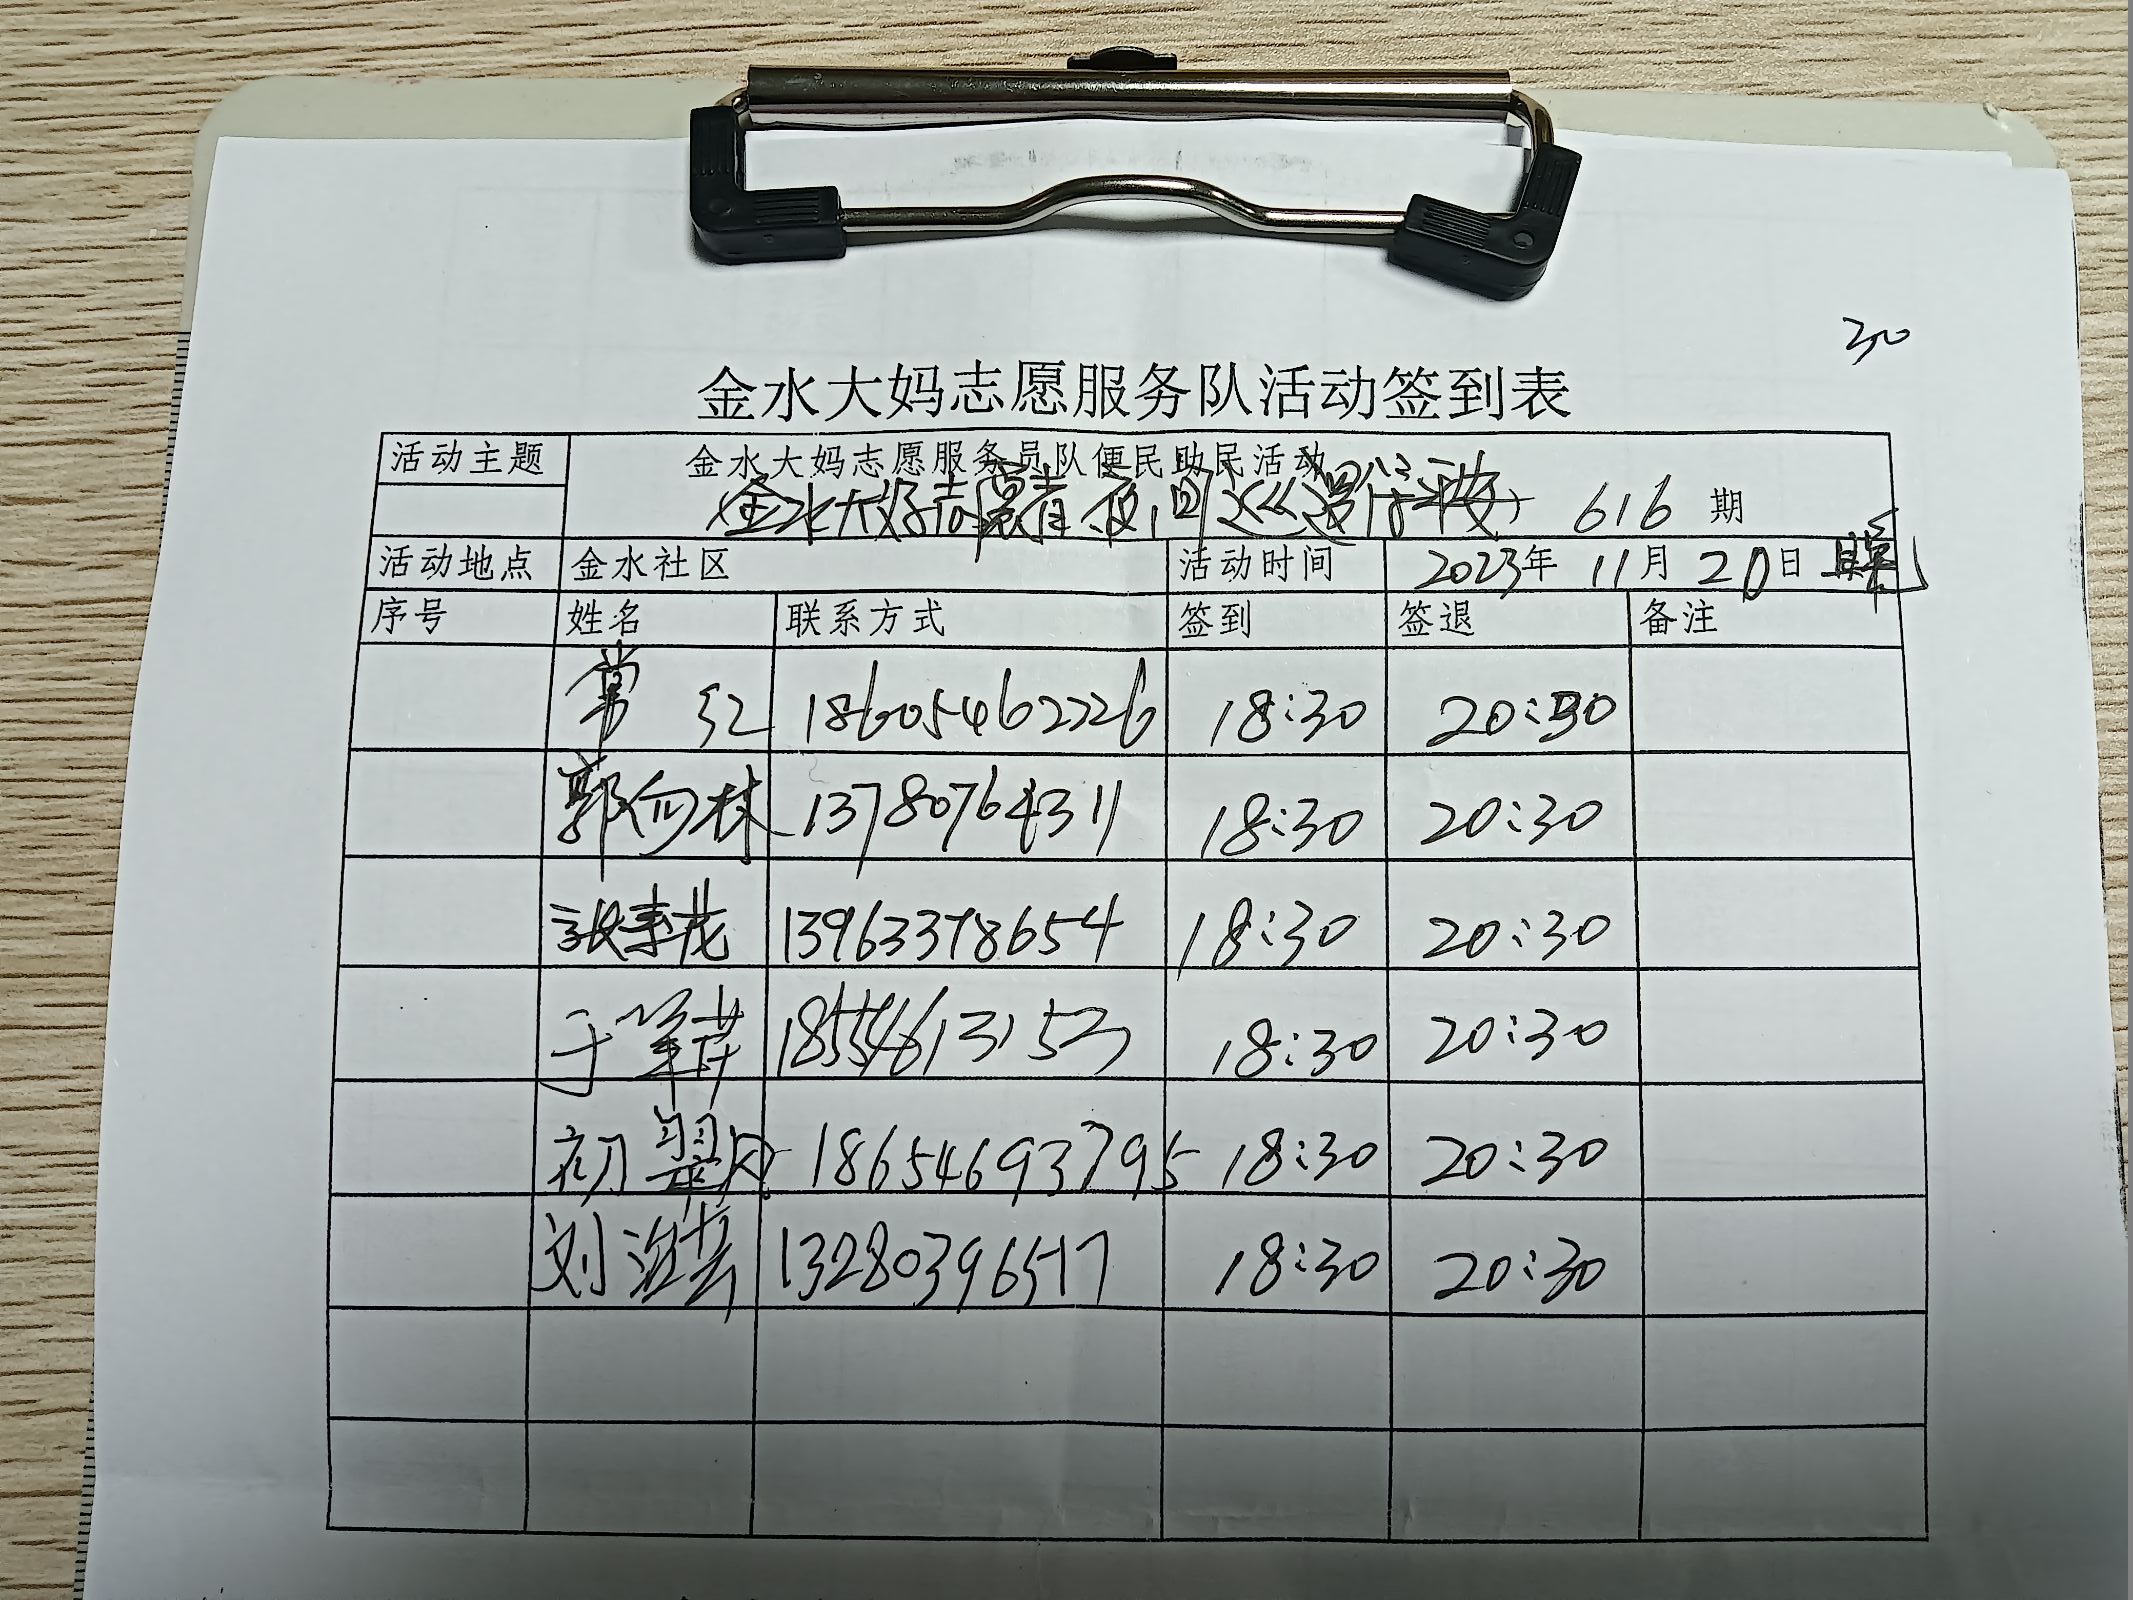 30
金水大妈志愿服务队活动签到表
活动主题 金水大妈志愿服务员队便民助民活动
(金水大妈志愿者夜间巡逻保平安) 616 期
活动地点 金水社区 活动时间 2023年 11月 20日 晚
序号 姓名 联系方式 签到 签退 备注
常红 18605462226 18:30 20:30
郭向林 13780764311 18:30 20:30
张季花 13963378654 18:30 20:30
于 18554613153 18:30 20:30
初翠 18654693795 18:30 20:30
刘洪芸 13280396517 18:30 20:30